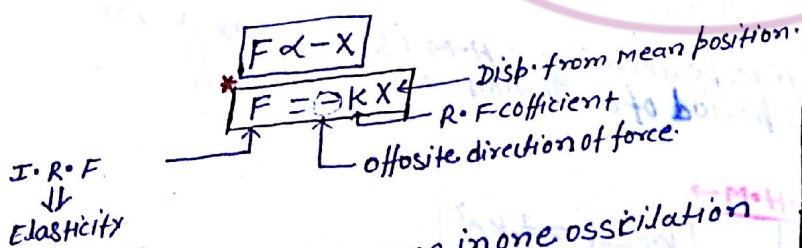 F ∝ -X
* F = -KX
Disp. from mean position.
R.F cofficient
offosite direction of force.
I.R.F
⇓
Elasticity
in one osscilation